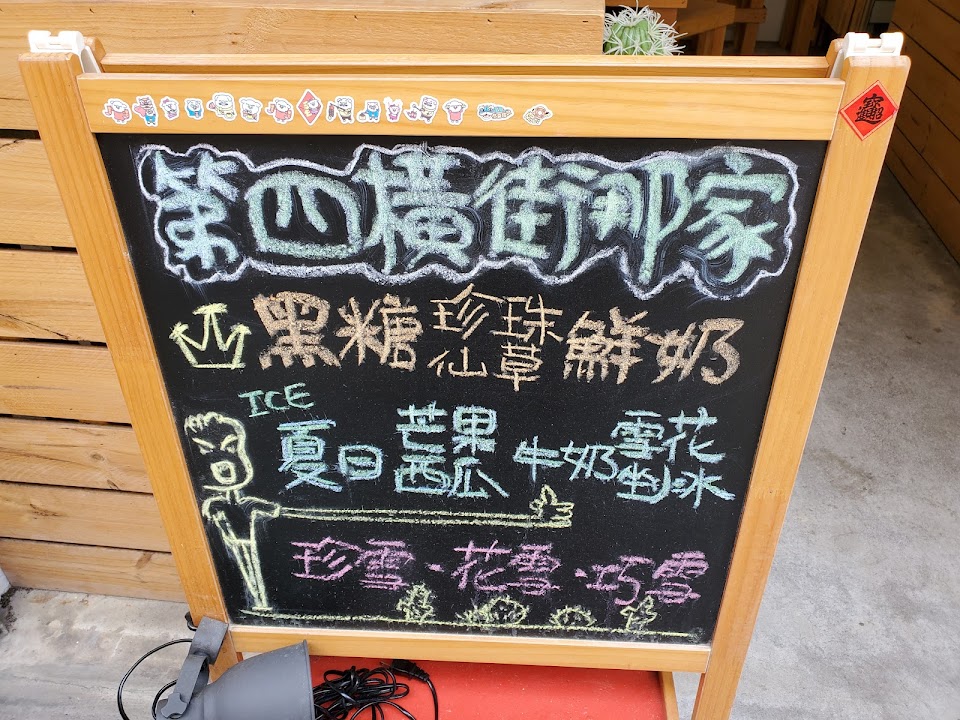 第四橫街那家
黑糖珍珠仙草鮮奶
ICE
夏日芒果西瓜牛奶雪花剉冰
珍雪·花雪·巧雪
招財進寶